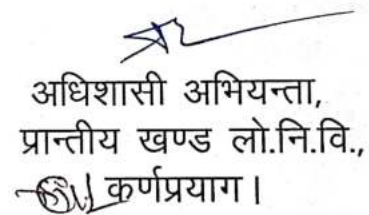 अधिशासी अभियन्ता,
प्रान्तीय खण्ड लो.नि.वि.,
कर्णप्रयाग।